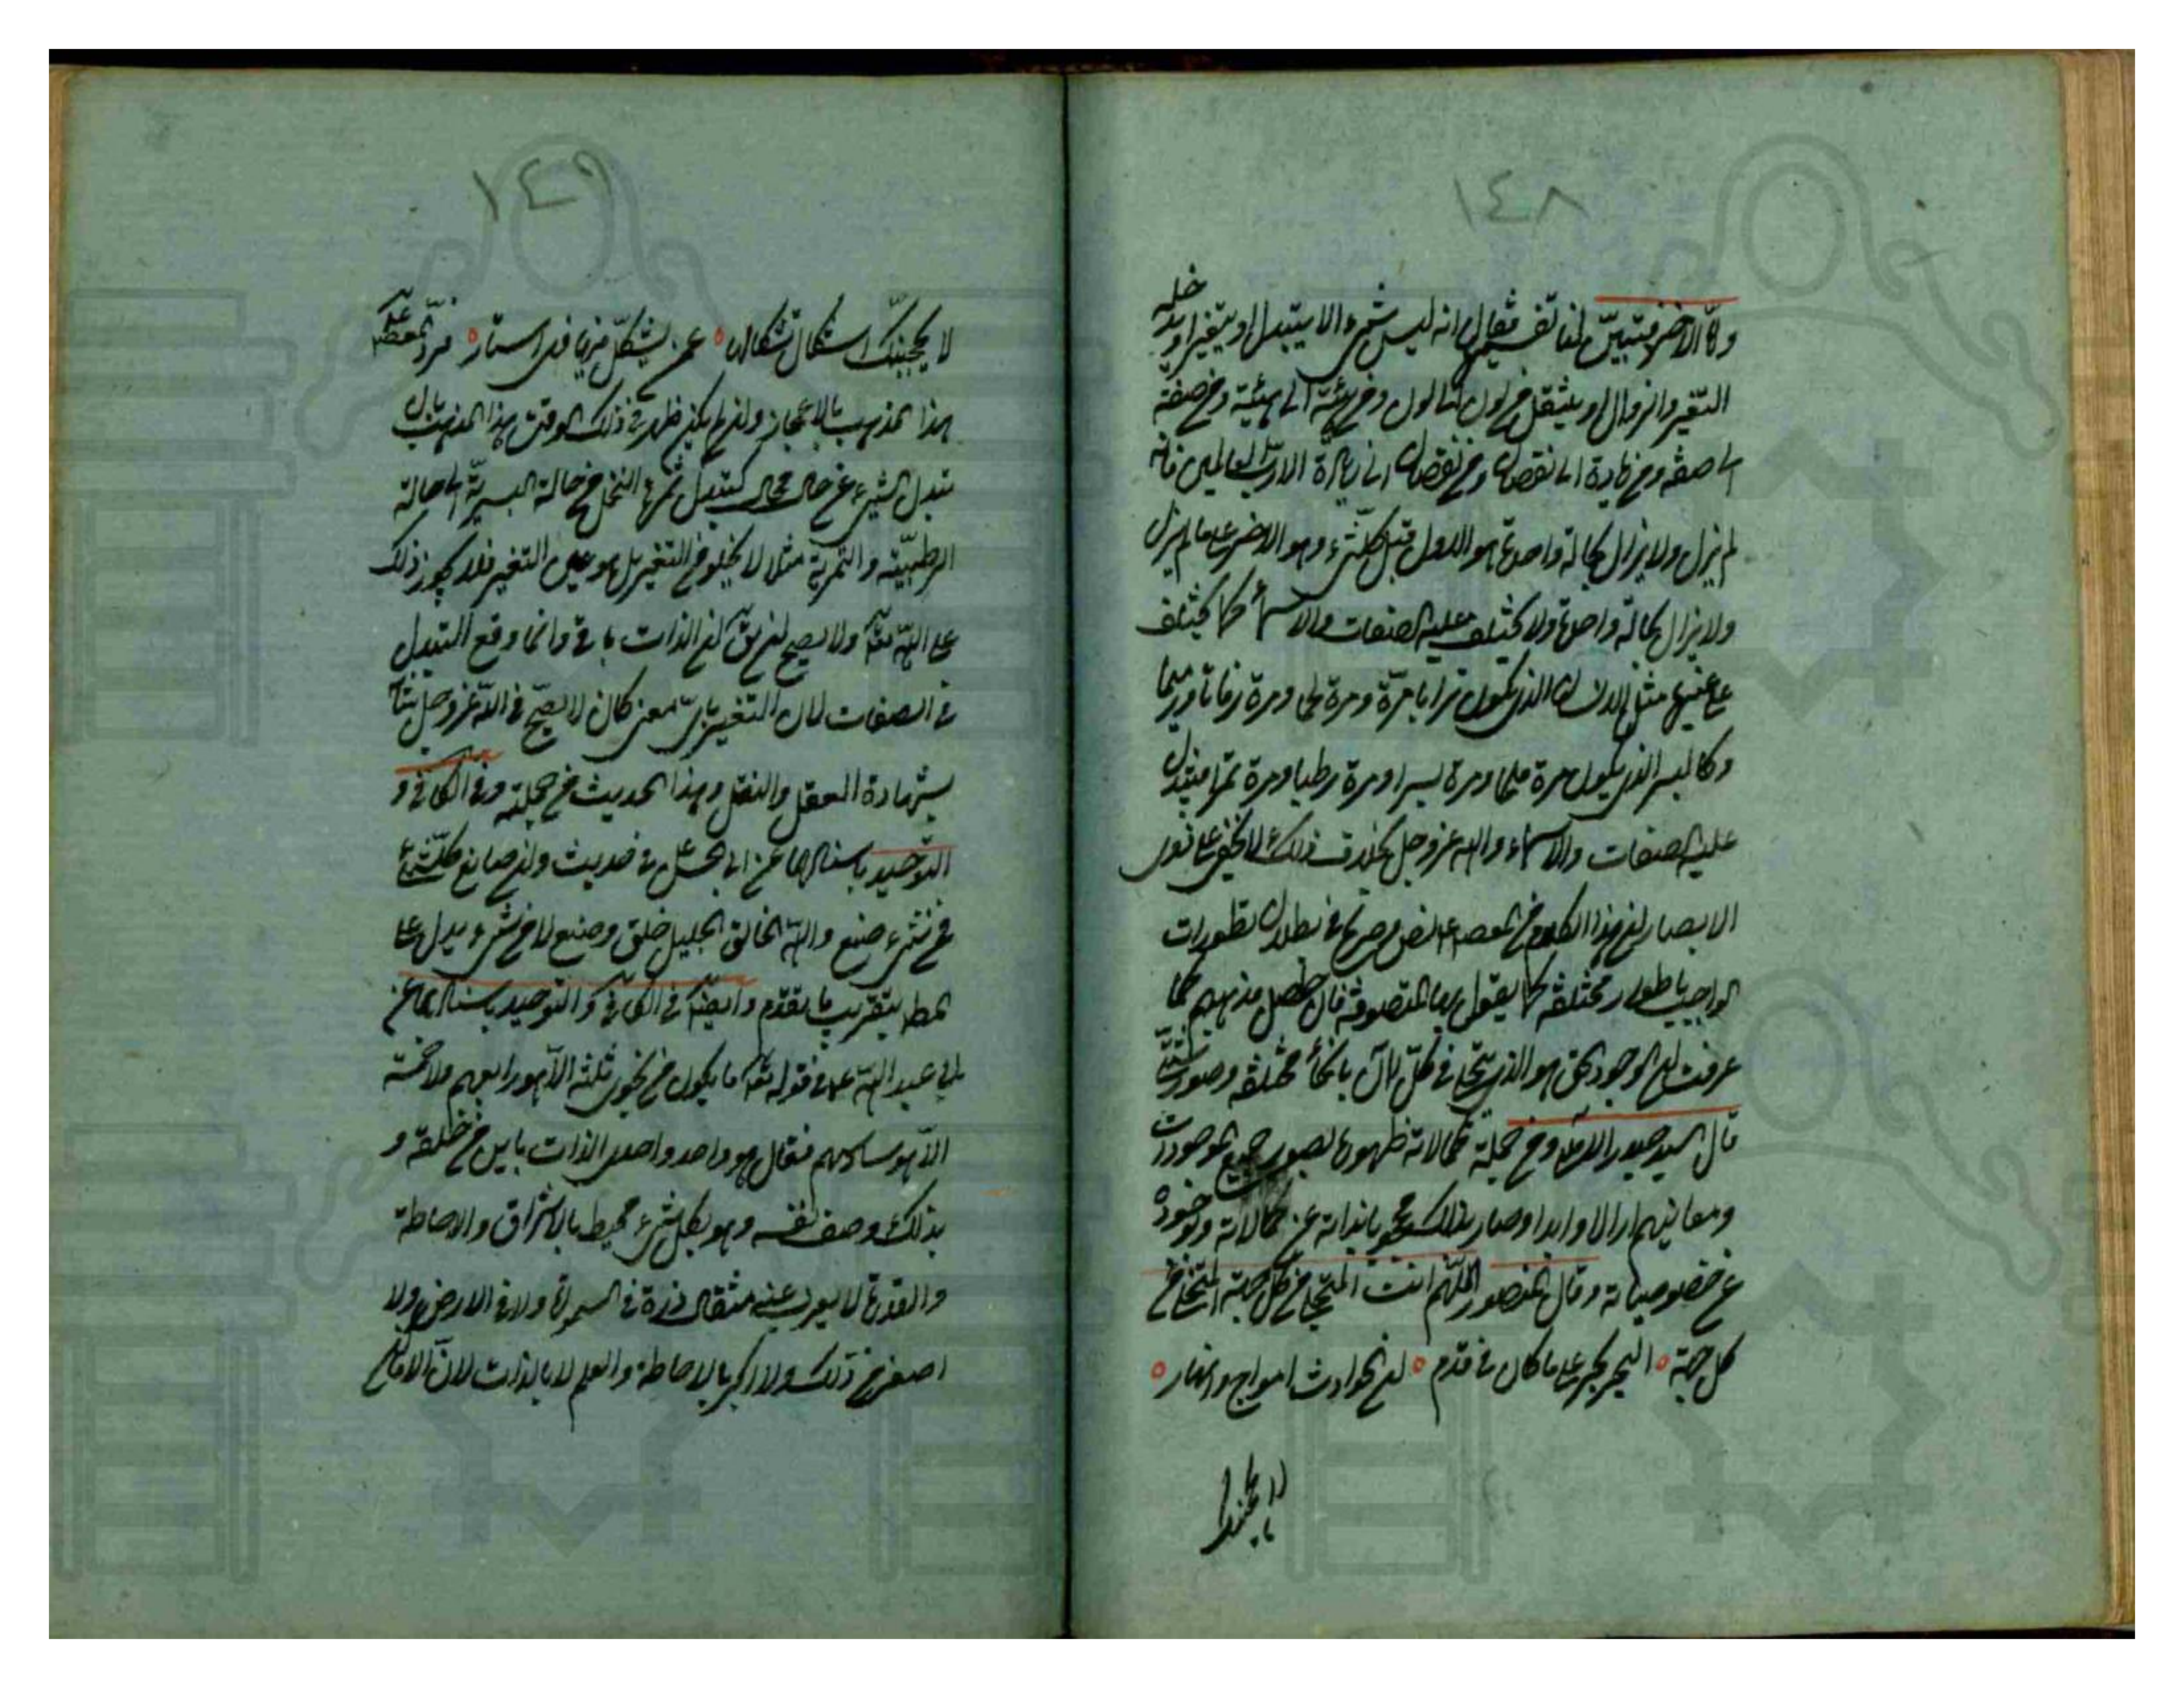 ١٤٨
واما الآخر فتبين لنا تفسيره فقال انه ليس شيء الا يتبدل او يتغير او يدخله
التغير والزوال او ينتقل من لون الى لون ومن هيئة الى هيئة ومن صفة
الى صفة ومن زيادة الى نقصان ومن نقصان الى زيادة الا رب العالمين فانه
لم يزل ولا يزال بحالة واحدة هو الاول قبل كل شيء وهو الآخر على ما لم يزل
ولا يزال بحالة واحدة ولا تختلف عليه الصفات والاسماء كما تختلف
على غيره مثل الانسان الذي يكون ترابا مرة ومرة لحما ومرة رفاتا ورميما
وكالبسر الذي يكون مرة بلحا ومرة بسرا ومرة رطبا ومرة تمرا فتتبدل
عليه الصفات والاسماء والله عز وجل بخلاف ذلك لا يخفى على
الابصار ان هذا الكلام من المعصوم ع نص وصريح في بطلان تطورات
الواجب باطوار مختلفة كما يقول بها المتصوفة فان حاصل مذهبهم كما
عرفت ان الوجود الحق هو الذي تجلى في كل آن بانحاء مختلفة وصور
قال السيد حيدر الآملي ومن جملة كمالاته ظهوره بصور جميع الموجودات
ومعانيهم ازلا وابدا وصار بذلك محجوبا بذاته عن كمالاته وبوجوده
عن خصوصياته وقال المنصور اللهم انت المتجلى من كل جهة المتخلى من
كل جهة ه البحر بحر على ما كان في قدم ه ان الحوادث امواج وانهار ه
لا يحجبنك
١٤٩
لا يحجبنك اشكال تشكالها ه عمن يشكل فيها فهى استار ه فرد المعصوم ع
هذا المذهب بالاعجاز وان لم يكن ظهر في ذلك الوقت هذا المذهب بان
تبدل الشيء عن حال بحال كتبدل ثمرة النخل من حالة البسرية الى حالة
الرطبية والتمرية مثلا لا يخلو من التغير بل هو عين التغير فلا يجوز ذلك
على الله تعالى ولا يصح ان يق ان الذات باق وانما وقع التبدل
في الصفات لان التغير باى معنى كان لا يصح في الله عز وجل
بشهادة العقل والنقل وهذا الحديث من جملته وفي الكافى و
التوحيد باسنادهما عن ابى الحسن ع في حديث وان صانع كل شيء
فمن شيء صنع والله الخالق الجليل خلق وصنع لا من شيء يدل على
المط بتقريب ما تقدم وايضا في الكافى والتوحيد باسنادهما عن
ابي عبد الله ع في قوله تعالى ما يكون من نجوى ثلثة الا هو رابعهم ولا خمسة
الا هو سادسهم فقال هو واحد واحدى الذات باين من خلقه و
بذلك وصف نفسه وهو بكل شيء محيط بالاشراق والاحاطة
والقدرة لا يعزب عنه مثقال ذرة في السموات ولا في الارض ولا
اصغر من ذلك ولا اكبر بالاحاطة والعلم لا بالذات لان الاماكن